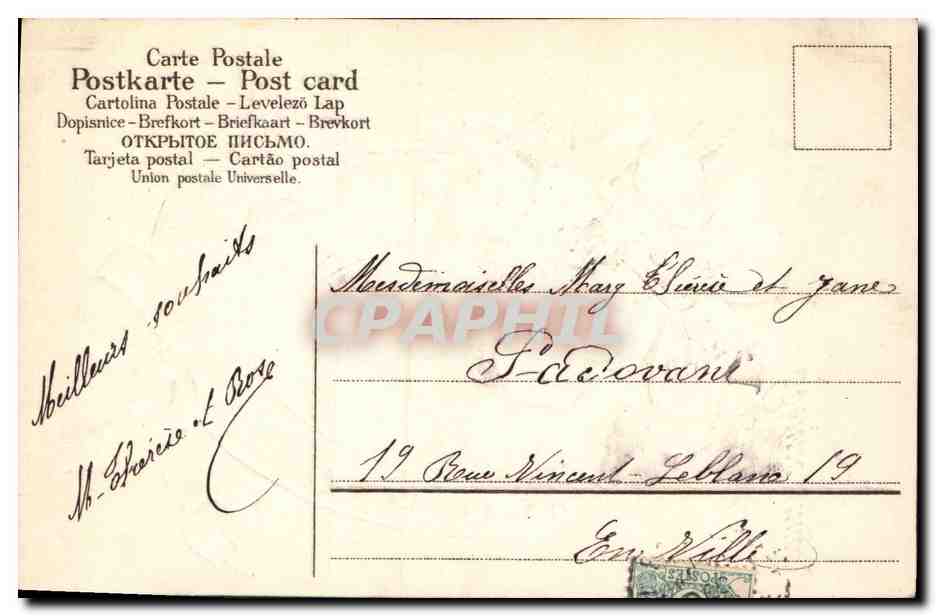 Carte Postale
Postkarte – Post card
Cartolina Postale – Levelezö Lap
Dopisnice – Brefkort – Briefkaart – Brevkort
ОТКРЫТОЕ ПИСЬМО.
Tarjeta postal — Cartão postal
Union postale Universelle.
Meilleurs souhaits
M-Thérèse et Rose
Mesdemoiselles Mary Thérèse et Jane
Padovani
19 Rue Vincent-Leblanc 19
En Ville
CPAPHIL
POSTES